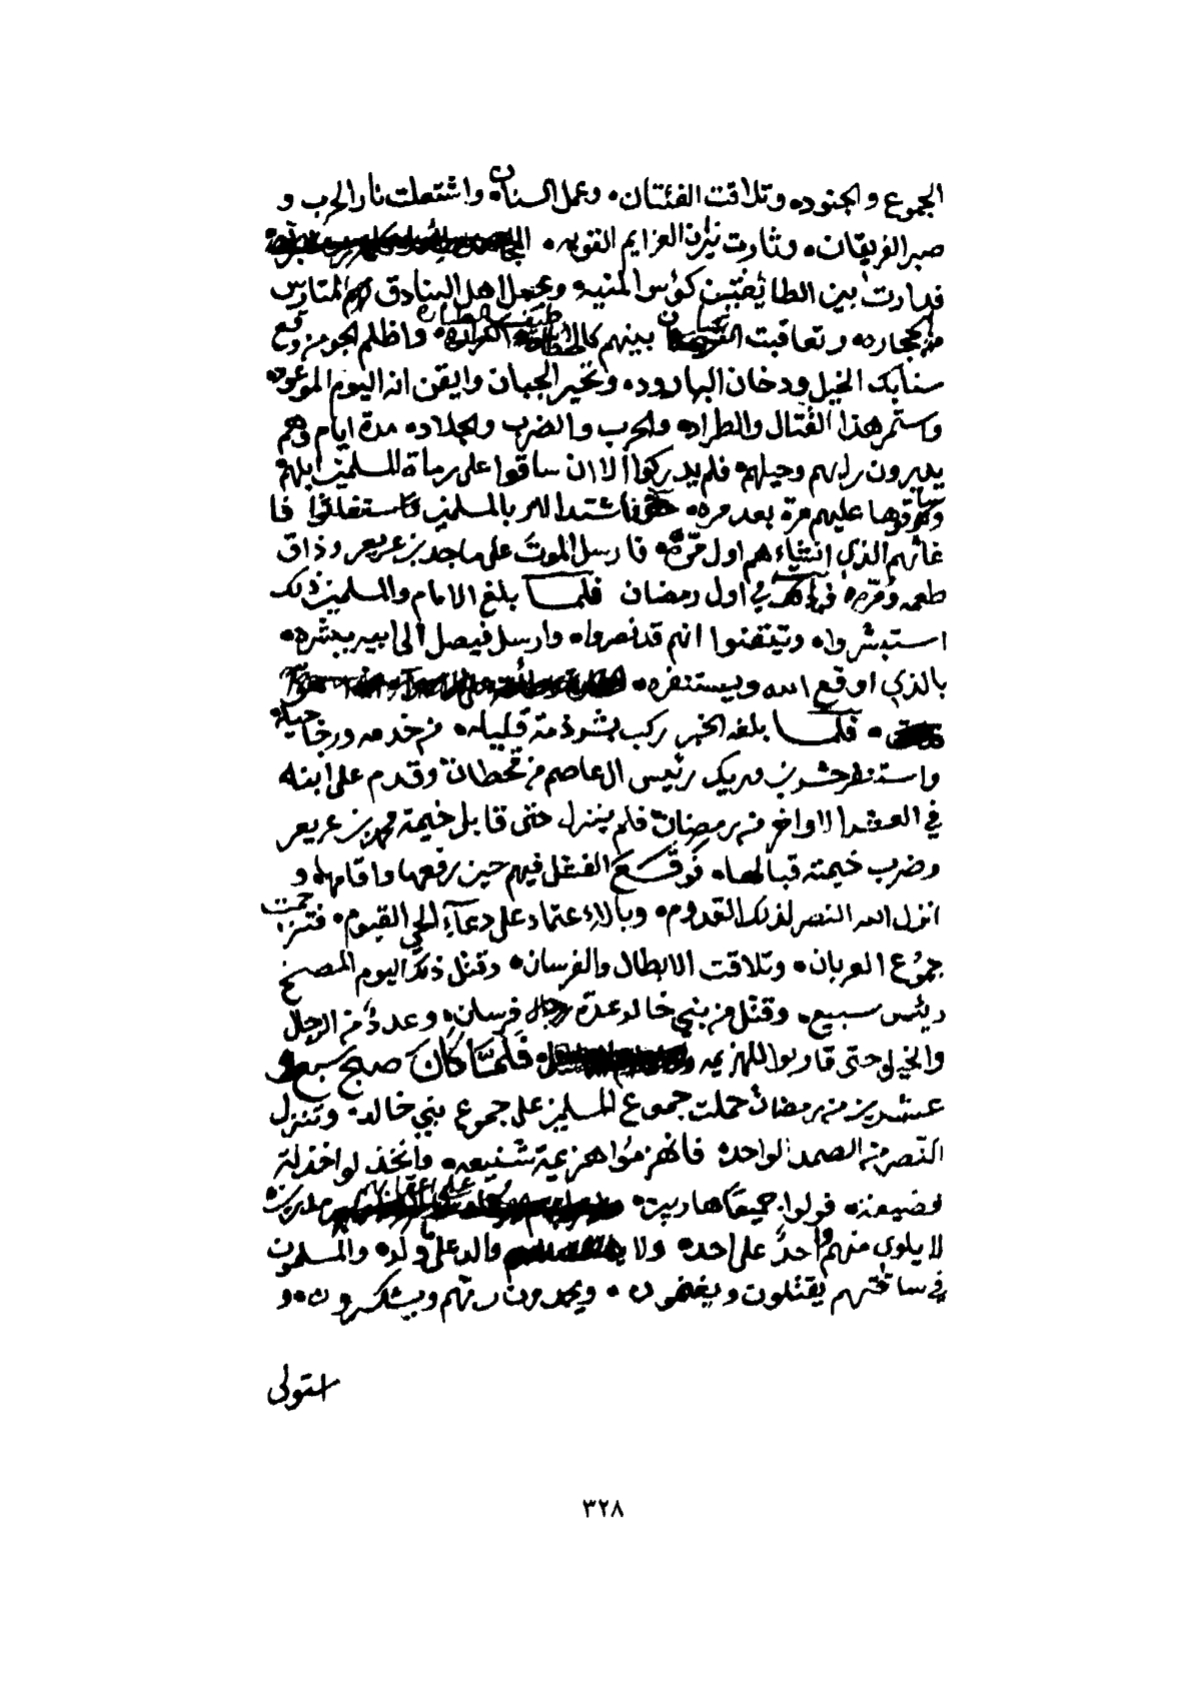 الجموع والجنود، وتلاقت الفئتان، وعمل السنان، واشتعلت نار الحرب و
صبر الفريقان، وثارت نيران العزايم القويه،
فدارت بين الطائفتين كؤس المنيه وعجعل اهل البنادق المتارس
من الحجاره، وتعاقبت بينهم واظلم الجو من وقع
سنابك الخيل ودخان البارود، وتحير الجبان وايقن انه اليوم الموعود
واستمر هذا القتال والطراد، والحرب والضرب والجلاد، مدة ايام وهم
يديرون رايهم وحيلهم، فلم يدركوا الا ان ساقوا على رماة المسلمين ابلهم
وساقوها عليهم مرة بعد مره، فاشتد الامر بالمسلمين فاستغاثوا فا
غاثهم الذي انشاءهم اول مرة، فارسل الموت على ماجد بن عريعر وذاق
طعمه ومره في اول رمضان فلما بلغ الامام والمسلمين ذلك
استبشروا، وتيقنوا انهم قد نصروا، وارسل فيصل الى ابيه يبشره،
بالذي اوقع الله ويستنفره،
فلما بلغه الخبر ركب بشرذمة قليله، من خدمه ورجاجيله
واستنفر حشر بن وريك رئيس ال عاصم من قحطان وقدم على ابنه
في العشر الاواخر من رمضان فلم ينزل حتى قابل خيمة محمد بن عريعر
وضرب خيمته قبالها، فوقع الفشل فيهم حين رفعها واقامها، و
انزل الله النصر لذلك القدوم، وبالاعتماد على دعاء الحي القيوم، فتزاحمت
جموع العربان، وتلاقت الابطال والفرسان، وقتل ذلك اليوم المصخ
رئيس سبيع، وقتل من بني خالد عدة رجال فرسان، وعدد من الرجال
والخيل حتى قاربوا للهزيمه فلما كان صبح سبع و
عشرين من رمضان حملت جموع المسلمين على جموع بني خالد، وتنزل
النصر من الصمد الواحد، فانهزموا هزيمة شنيعه، واتخذلوا خذلة
وضيعه، فولوا جميعا هاربين، على اعقابهم مدبرين،
لا يلوى منهم احد على احد، ولا والد على ولد، والمسلمون
في ساقتهم يقتلون ويغنمون، ويحمدون ربهم ويشكرون، و
استولى
٣٢٨